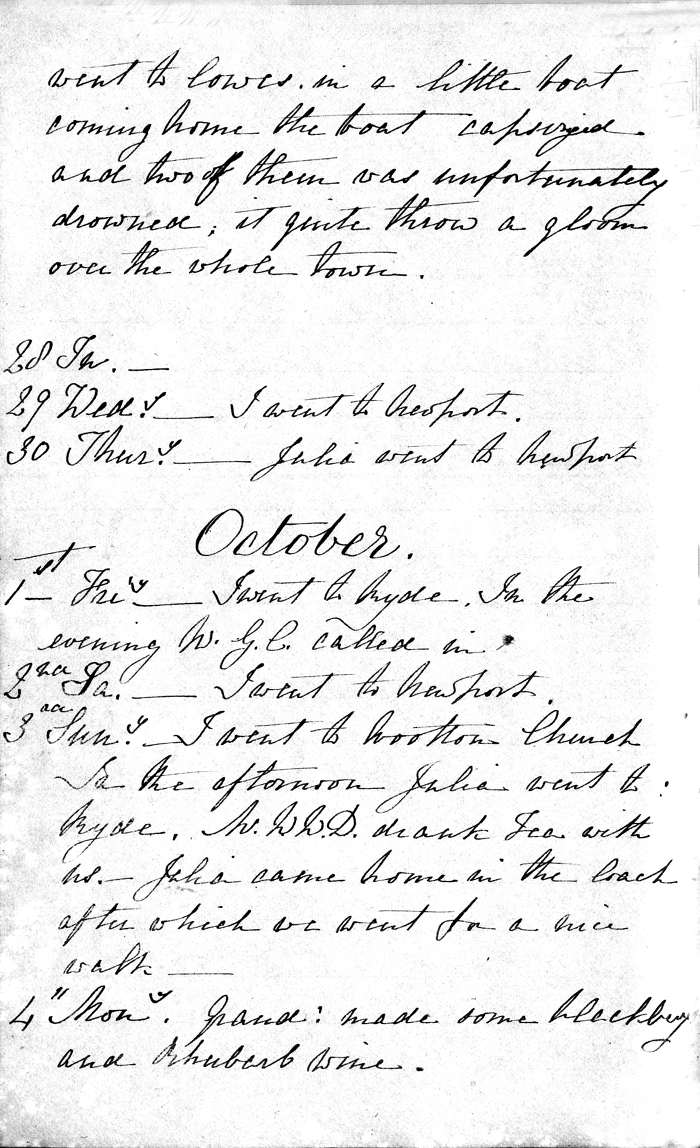 went to Cowes. in a little boat
coming home the boat capsized
and two of them was unfortunately
drowned; it quite throw a gloom
over the whole town.
28 Tu. —
29 Wedy. — I went to Newport.
30 Thursy. — Julia went to Newport
October.
1st Friy — I went to Ryde. In the
evening W. G. C. called in
2nd Sa. — I went to Newport.
3rd Suny. — I went to Wootton Church
In the afternoon Julia went to
Ryde. W.D. drank Tea with
us. — Julia came home in the Coach
after which we went for a nice
walk —
4" Mony. Grand: made some blackbery
and Rhubarb wine.